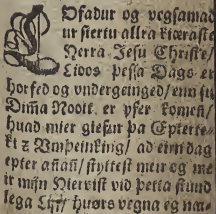 LOfadur og vegsamad
ur siertu allra kiæraste
Herra Jesu Christe/
Lioos þessa Dags er
horfed og vndergeinged/ enn su
Dim̃a Noott er yfer komen/
huad mier giefur þa Epterte-
kt z Vmþeinking/ ad einn dag
epter añañ/ styttest meir og me
ir mijn Hiervist vid þetta stund
lega Lijf/ huørs vegna eg næ-